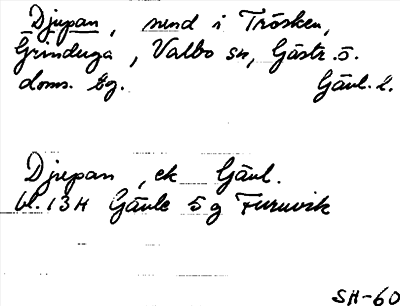 Djupan, sund i Trösken,
Grinduga, Valbo sn, Gästr. ö.
doms. tg. Gävl. l.
Djupan, ek Gävl.
bl. 13H Gävle 5 g Furuvik
SH-60